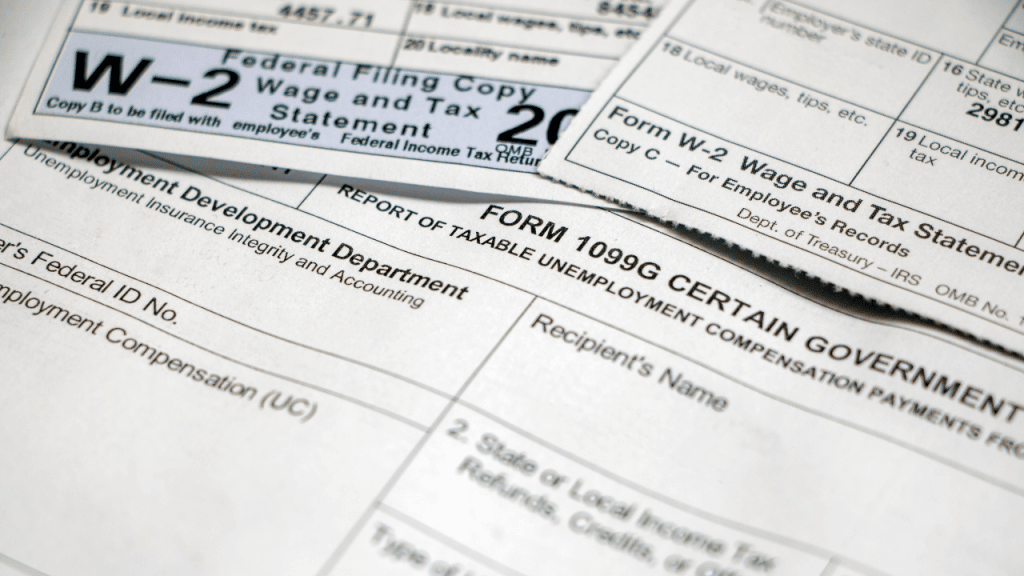 19 Local income tax
4457.71
18 Local wages, tips, etc.
20 Locality name
W-2
Federal Filing Copy
Wage and Tax
Statement
20
OMB
Copy B to be filed with employee's Federal Income Tax Return
Employer's state ID
number
18 Local wages, tips, etc.
16 State
tips, etc
2981
19 Local
tax
Form W-2 Wage and Tax
Copy C – For Employee's Records
Dept. of Treasury – IRS OMB No.
Employment Development Department
Unemployment Insurance Integrity and Accounting
Federal ID No.
Compensation (UC)
FORM 1099G CERTAIN GOVERNMENT
REPORT OF TAXABLE UNEMPLOYMENT COMPENSATION PAYMENTS
Recipient's Name
2. State or Local Income Tax
Refunds, Credits, or
Type of